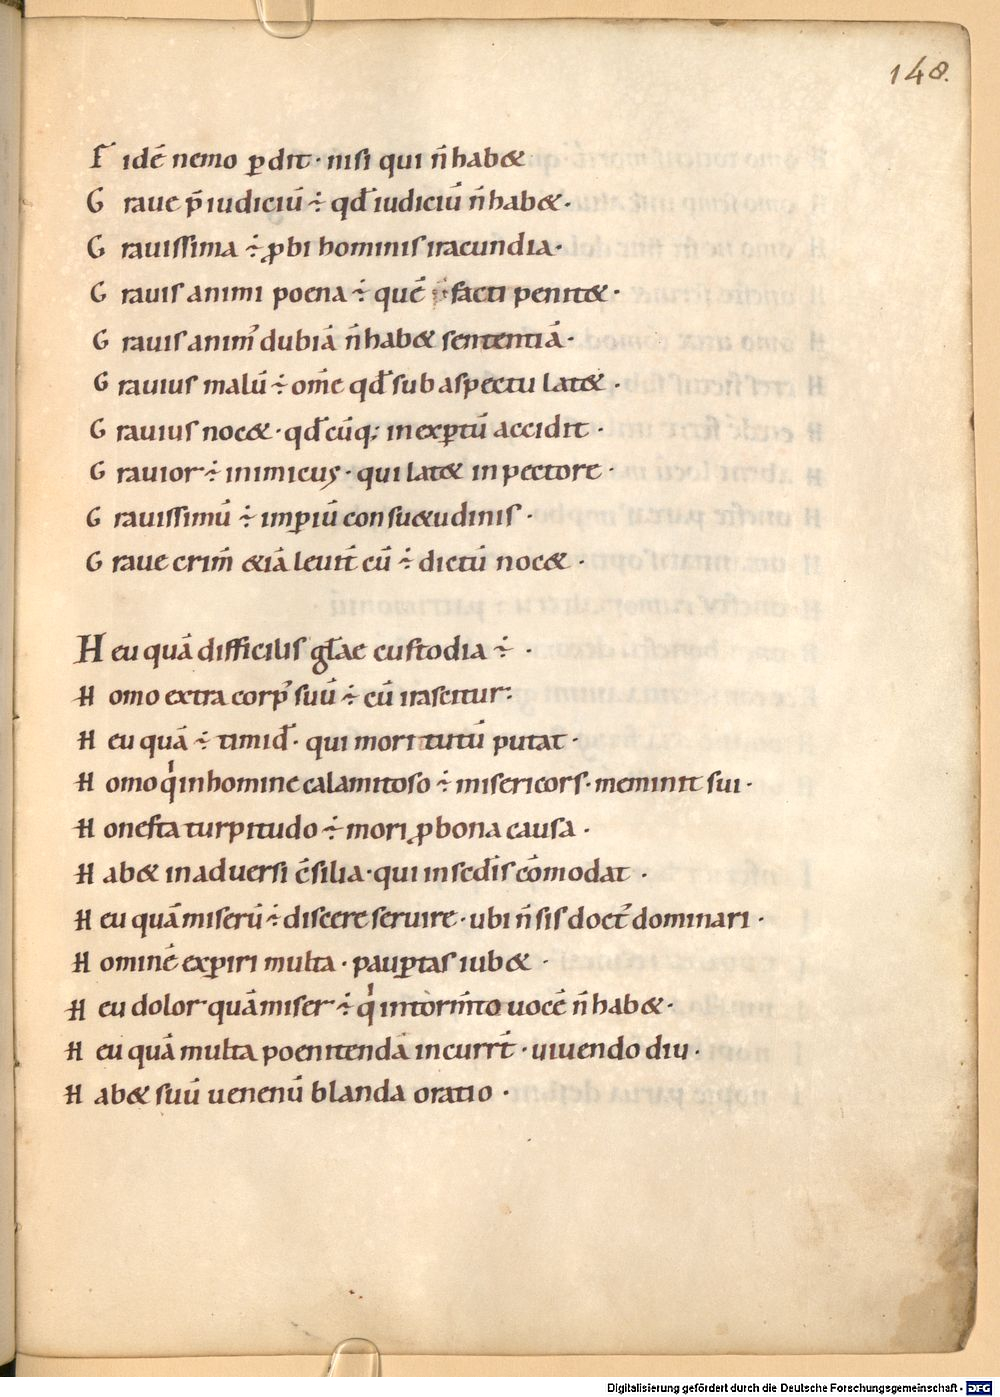 148.
F idē nemo ꝑdit · nisi qui n̄ hab&
G raue p̄iudiciū ÷ qđ iudiciū n̄ hab& ·
G rauissima ÷ ꝓbi hominis iracundia ·
G rauis animi poena ÷ quē facti penit& ·
G rauis anim̄ dubiā n̄ hab& sententiā ·
G rauius malū ÷ om̄e qđ sub aspectu lat& ·
G rauius noc& · qđcūq; inexꝑtū accidit ·
G rauior ÷ inimicus · qui lat& in pectore ·
G rauissimū ÷ imꝑiū consu&udinis ·
G raue crim̄ &iā leuit̄ cū ÷ dictū noc& ·
H eu quā difficilis gl̄ae custodia ÷ ·
H omo extra corp᾽ suū ÷ cū irascitur:
H eu quā ÷ timid᾽ · qui mori tutū putat ·
H omo qͥ in homine calamitoso ÷ misericors · meminit sui ·
H onesta turpitudo ÷ mori ꝓ bona causa ·
H ab& in aduersi c̄silia · qui in sedīs cōmodat ·
H eu quā miserū ÷ discere seruire · ubi n̄ sis doct᾽ dominari ·
H ominē exꝑiri multa · pauꝑtas iub& ·
H eu dolor quā miser ÷ qͥ in torm̄to uocē n̄ hab& ·
H eu quā multa poenitendā incurrt̄ · uiuendo diu ·
H ab& suū uenenū blanda oratio ·
Digitalisierung gefördert durch die Deutsche Forschungsgemeinschaft - DFG